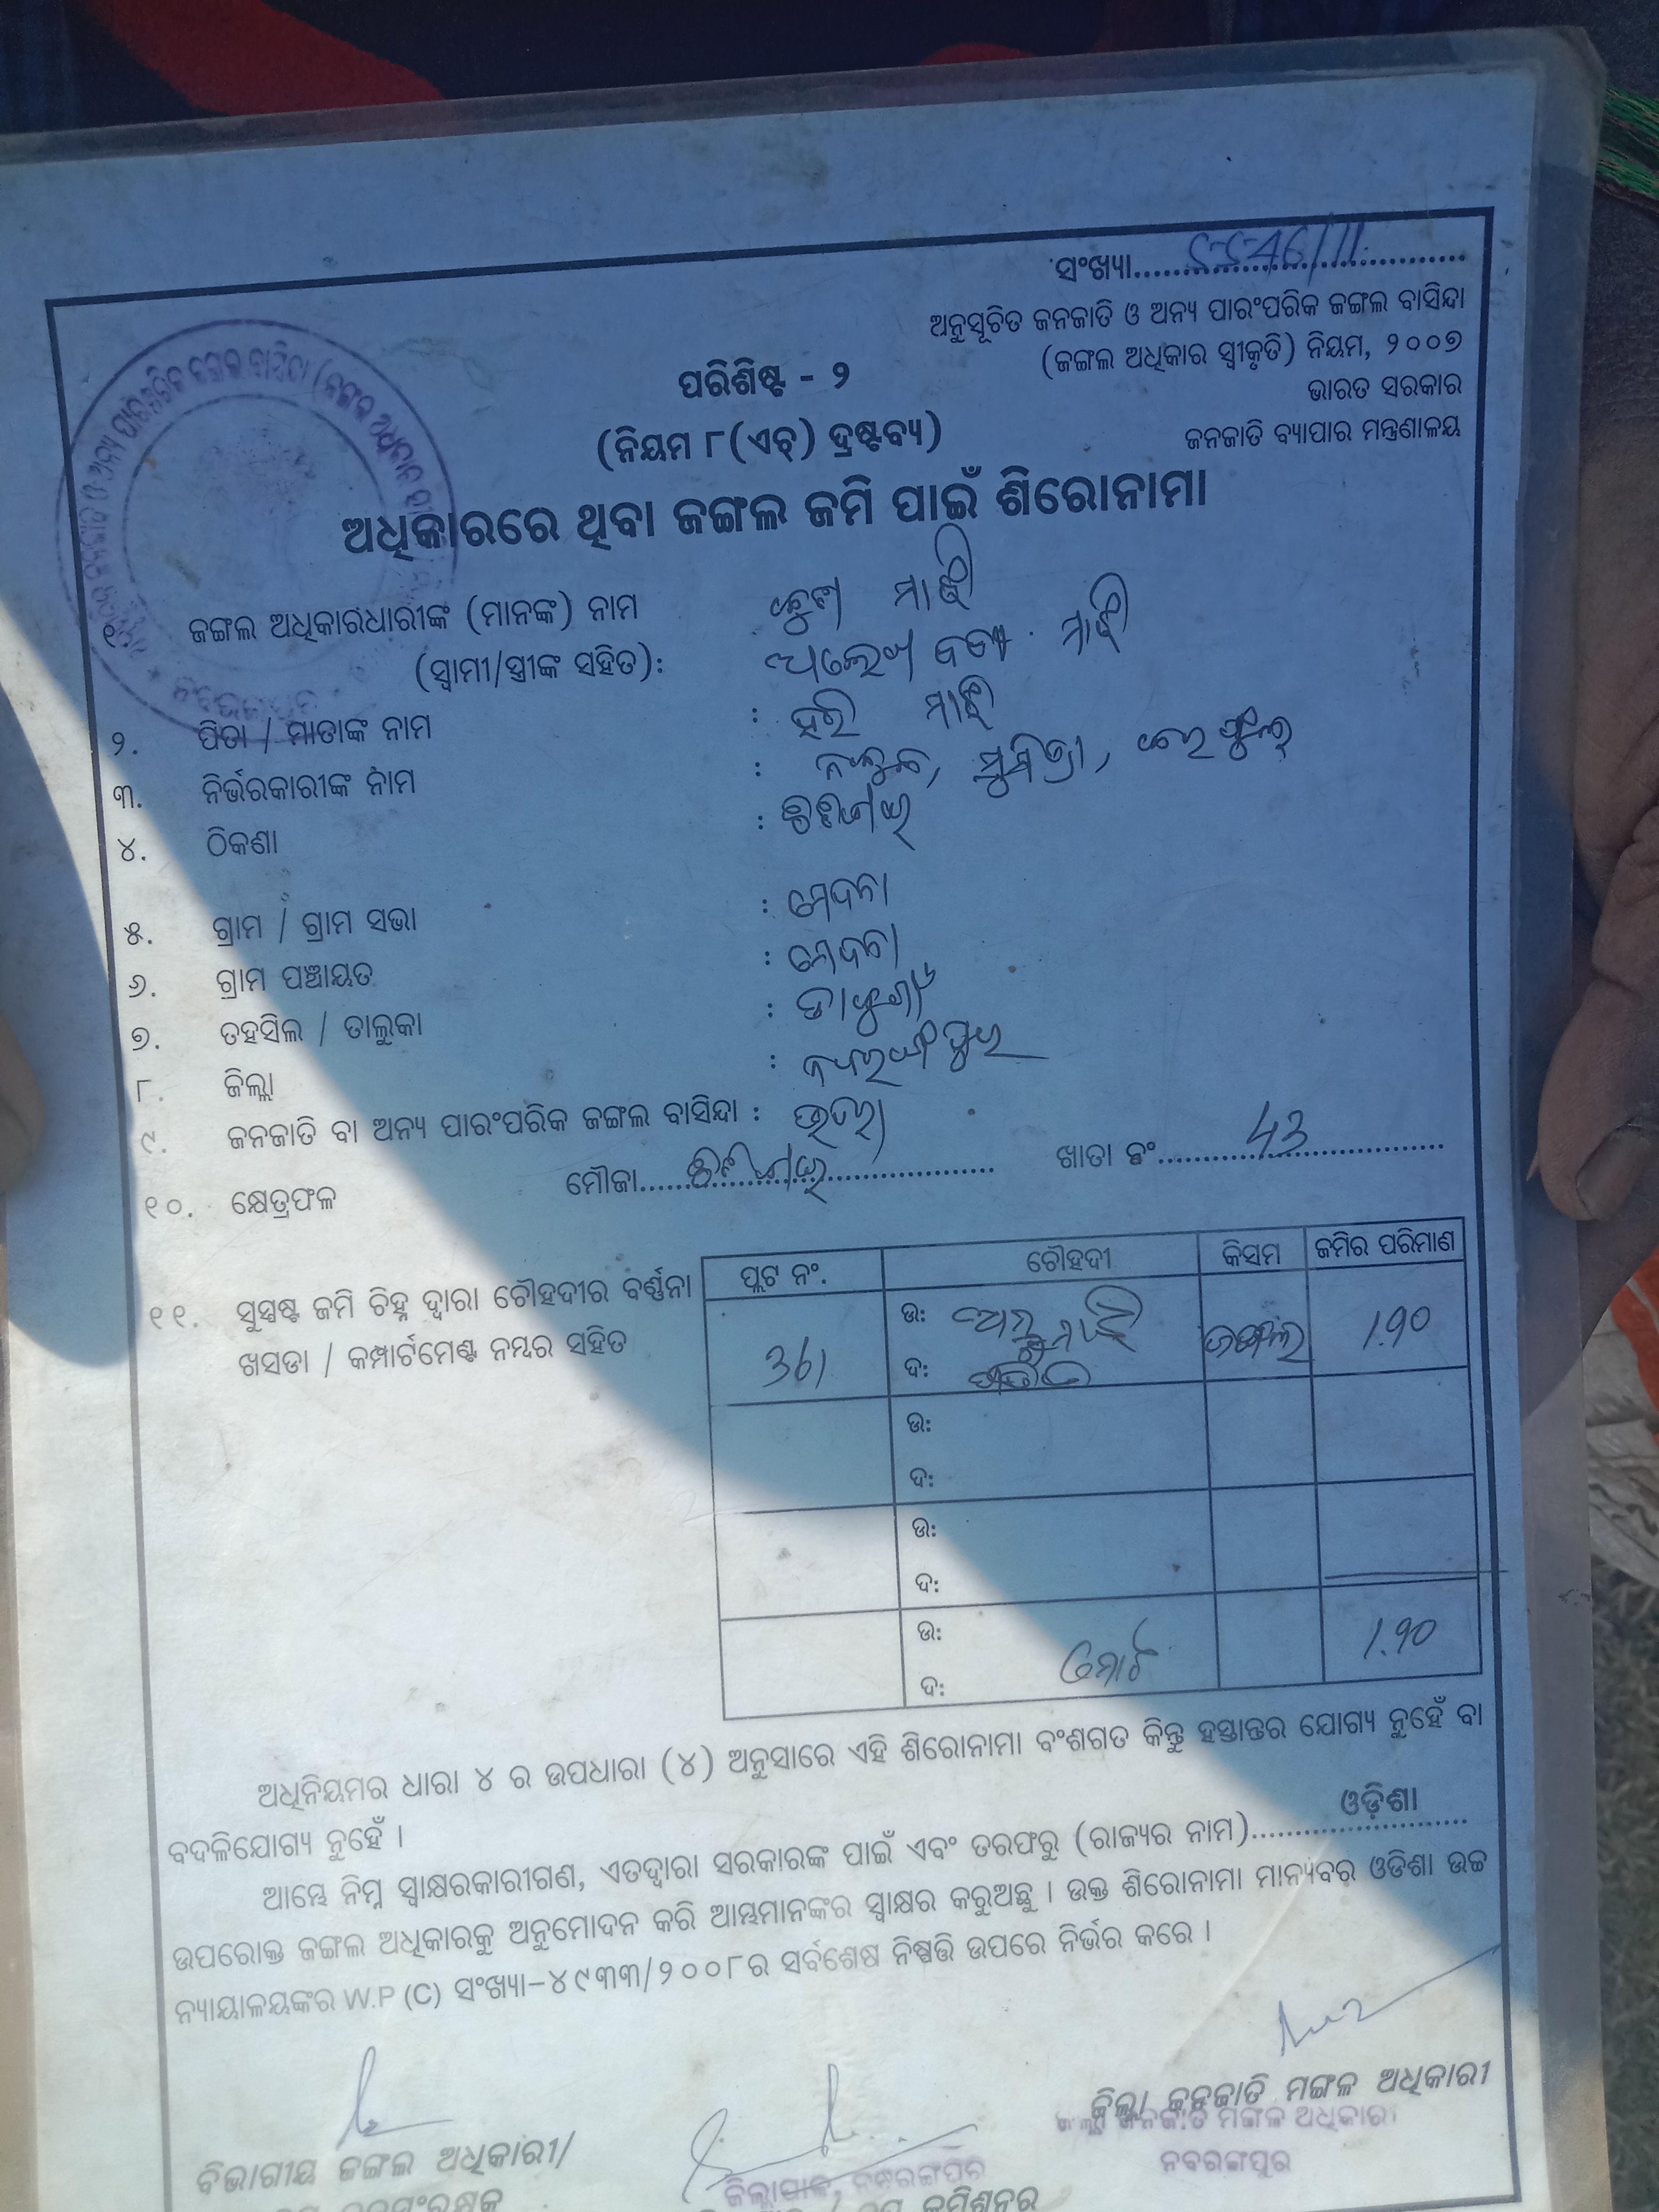 ସଂଖ୍ୟା
ଅନୁସୂଚିତ ଜନଜାତି ଓ ଅନ୍ୟ ପାରଂପରିକ ଜଙ୍ଗଲ ବାସିନ୍ଦା
(ଜଙ୍ଗଲ ଅଧିକାର ସ୍ୱୀକୃତି) ନିୟମ, ୨୦୦୭
ଭାରତ ସରକାର
ଜନଜାତି ବ୍ୟାପାର ମନ୍ତ୍ରଣାଳୟ
ପରିଶିଷ୍ଟ - ୨
(ନିୟମ ୮(ଏଚ୍) ଦ୍ରଷ୍ଟବ୍ୟ)
ଅଧିକାରରେ ଥିବା ଜଙ୍ଗଲ ଜମି ପାଇଁ ଶିରୋନାମା
୧. ଜଙ୍ଗଲ ଅଧିକାରଧାରୀଙ୍କ (ମାନଙ୍କ) ନାମ ମାଝି
(ସ୍ୱାମୀ/ସ୍ତ୍ରୀଙ୍କ ସହିତ): ମାଝି
୨. ପିତା / ମାତାଙ୍କ ନାମ : ହରି ମାଝି
୩. ନିର୍ଭରକାରୀଙ୍କ ନାମ :
୪. ଠିକଣା :
୫. ଗ୍ରାମ / ଗ୍ରାମ ସଭା : ମେଦନା
୬. ଗ୍ରାମ ପଞ୍ଚାୟତ : ମେଦନା
୭. ତହସିଲ / ତାଲୁକା : ଡାବୁଗାଁ
୮. ଜିଲ୍ଲା : ନବରଙ୍ଗପୁର
୯. ଜନଜାତି ବା ଅନ୍ୟ ପାରଂପରିକ ଜଙ୍ଗଲ ବାସିନ୍ଦା :
୧୦. କ୍ଷେତ୍ରଫଳ ମୌଜା ଖାତା ନଂ 43
୧୧. ସୁସ୍ପଷ୍ଟ ଜମି ଚିହ୍ନ ଦ୍ୱାରା ଚୌହଦୀର ବର୍ଣ୍ଣନା
ଖସଡା / କମ୍ପାର୍ଟମେଣ୍ଟ ନମ୍ବର ସହିତ
ପ୍ଲଟ ନଂ. ଚୌହଦୀ କିସମ ଜମିର ପରିମାଣ
361 ଉ: ଜଙ୍ଗଲ 1.90
ଦ:
ଉ:
ଦ:
ଉ:
ଦ:
ଉ:
ଦ: ମୋଟ 1.90
ଅଧିନିୟମର ଧାରା ୪ ର ଉପଧାରା (୪) ଅନୁସାରେ ଏହି ଶିରୋନାମା ବଂଶଗତ କିନ୍ତୁ ହସ୍ତାନ୍ତର ଯୋଗ୍ୟ ନୁହେଁ ବା
ବଦଳିଯୋଗ୍ୟ ନୁହେଁ ।
ଆମ୍ଭେ ନିମ୍ନ ସ୍ୱାକ୍ଷରକାରୀଗଣ, ଏତଦ୍ୱାରା ସରକାରଙ୍କ ପାଇଁ ଏବଂ ତରଫରୁ (ରାଜ୍ୟର ନାମ) ଓଡ଼ିଶା
ଉପରୋକ୍ତ ଜଙ୍ଗଲ ଅଧିକାରକୁ ଅନୁମୋଦନ କରି ଆମ୍ଭମାନଙ୍କର ସ୍ୱାକ୍ଷର କରୁଅଛୁ । ଉକ୍ତ ଶିରୋନାମା ମାନ୍ୟବର ଓଡିଶା ଉଚ୍ଚ
ନ୍ୟାୟାଳୟଙ୍କର W.P (C) ସଂଖ୍ୟା-୪୯୩୩/୨୦୦୮ର ସର୍ବଶେଷ ନିଷ୍ପତ୍ତି ଉପରେ ନିର୍ଭର କରେ ।
ଜିଲ୍ଲା ଜନଜାତି ମଙ୍ଗଳ ଅଧିକାରୀ
ଜିଲ୍ଲା ଜନଜାତି ମଙ୍ଗଳ ଅଧିକାରୀ
ନବରଙ୍ଗପୁର
ବିଭାଗୀୟ ଜଙ୍ଗଲ ଅଧିକାରୀ/
ଜିଲ୍ଲାପାଳ, ନବରଙ୍ଗପୁର